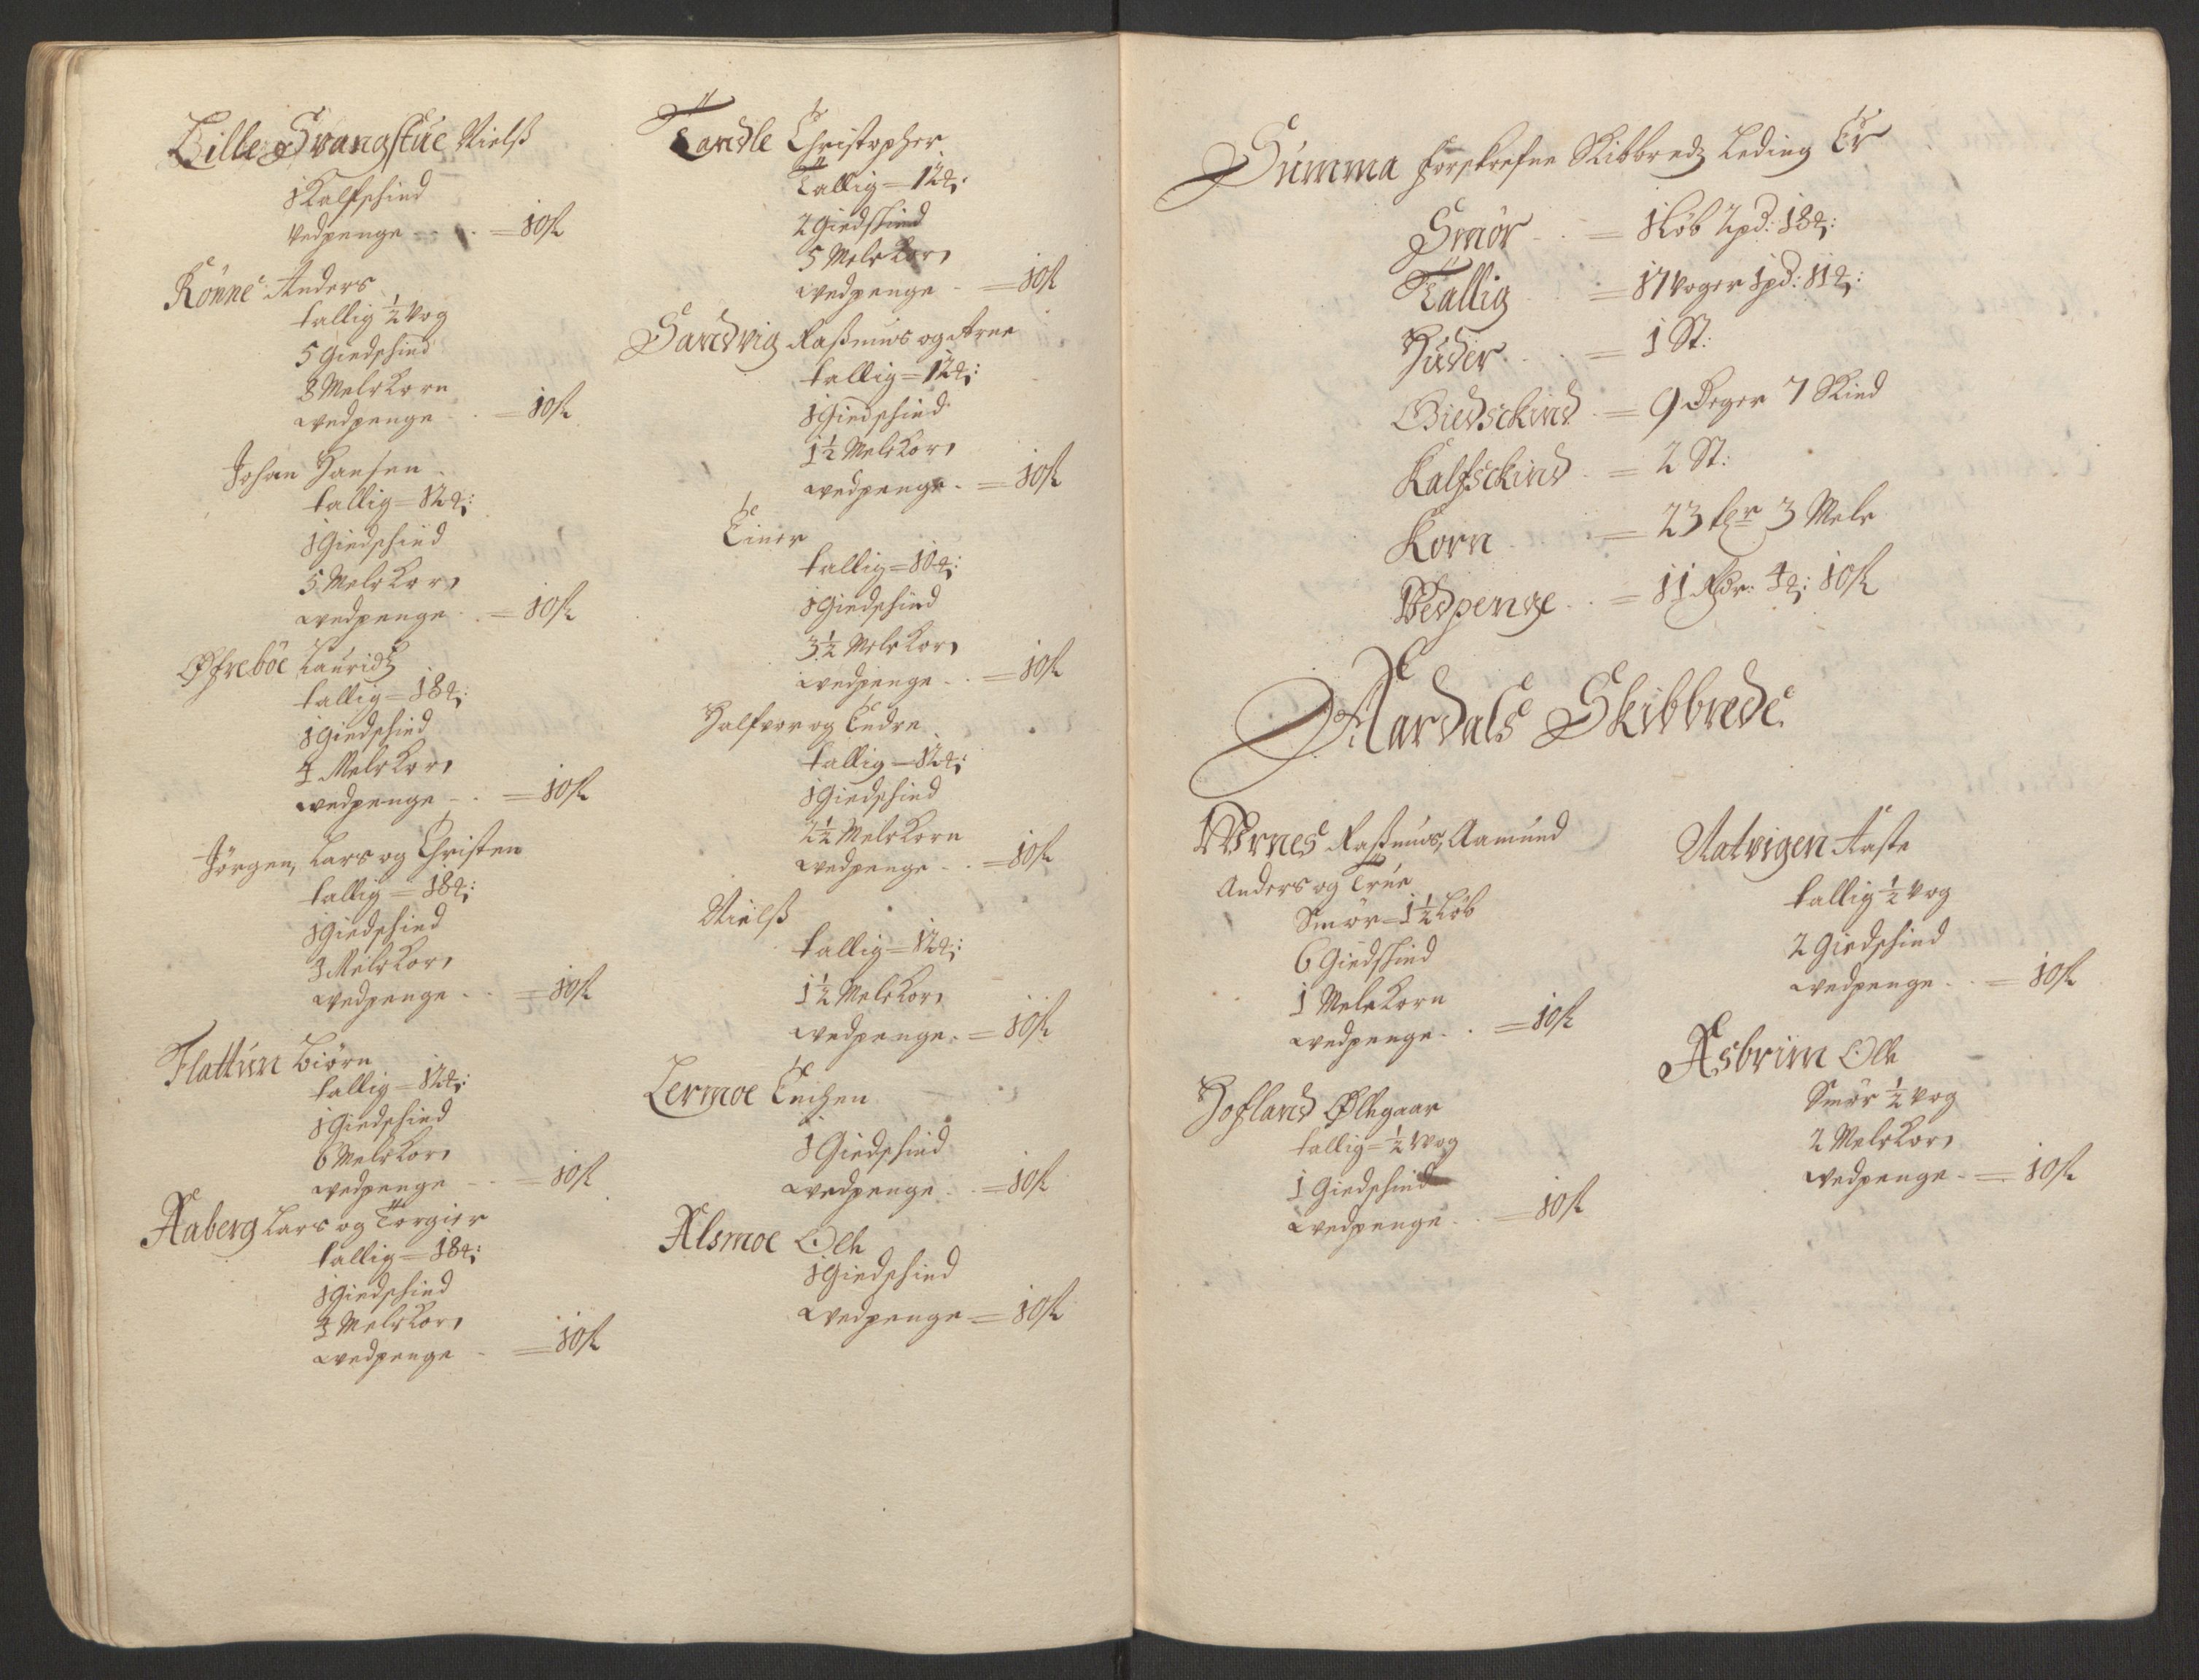 Lille Svangstue Nielß
1 Kalfschind
Vedpenge - - = 10 ſk
Rönne Anders
tallig ½ Vog
5 Giedschind
8 Mele Korn
wedpenge - = 10 ſk
Johan Hansen
tallig = 12 ℔:
1 Giedschind
5 Mele Korn
wedpenge - = 10 ſk
Øfreböe Lauridtz
tallig = 18 ℔:
1 Giedschind
4 Mele Korn
wedpenge - - = 10 ſk
Jörgen, Lars og Christen
tallig = 18 ℔:
1 Giedschind
3 Mele Korn
wedpenge - - = 10 ſk
Flattun Biörn
tallig = 12 ℔:
1 Giedschind
6 Mele Korn
wedpenge - - = 10 ſk
Aaberg Lars og Torgier
tallig = 18 ℔:
1 Giedschind
4 Mele Korn
wedpenge - = 10 ſk
Tandle Christopher
Tallig = 12 ℔:
2 Giedschind
5 Mele Korn
wedpenge - = 10 ſk
Sandvig Raßmus og Arne
tallig = 12 ℔:
1 Giedschind
1½ Mele Korn
wedpenge - = 10 ſk
Einer
tallig = 10 ℔:
1 Giedschind
3½ Mele Korn
wedpenge - - = 10 ſk
Halfvor og Endre
tallig = 12 ℔:
1 Giedschind
2½ Mele Korn
wedpenge - - = 10 ſk
Nielß
tallig = 12 ℔:
1½ Mele Korn
wedpenge - = 10 ſk
Lermoe Enchen
1 Giedschind
wedpenge - - = 10 ſk
Alsmoe Olle
1 Giedschind
wedpenge = 10 ſk
Summa forskrefne Skibbredz Leding Er
Smör - - = 1 Löb 2 pd: 18 ℔:
Tallig - = 17 Voger 1 pd: 11 ℔:
Huder - - = 1 St:
Giedschind - = 9 Deger 7 Skind
Kalfschind - = 2 St:
Korn - = 23 tr 3 Mele
Wedpenge - - = 11 Rdr: 4 ℔: 10 ſk
Aardals Skibbrede
Urnes Raßmus, Aamund
Anders og True
Smör = 1½ Löb
6 Giedschind
1 Mele Korn
wedpenge - - = 10 ſk
Hofland Øllegaar
tallig = ½ Wog
1 Giedschind
wedpenge - - = 10 ſk
Natvigen Aaste
tallig ½ Vog
2 Giedschind
wedpenge - - = 10 ſk
Asbrim Olle
Smör ½ Vog
2 Mele Korn
wedpenge - = 10 ſk